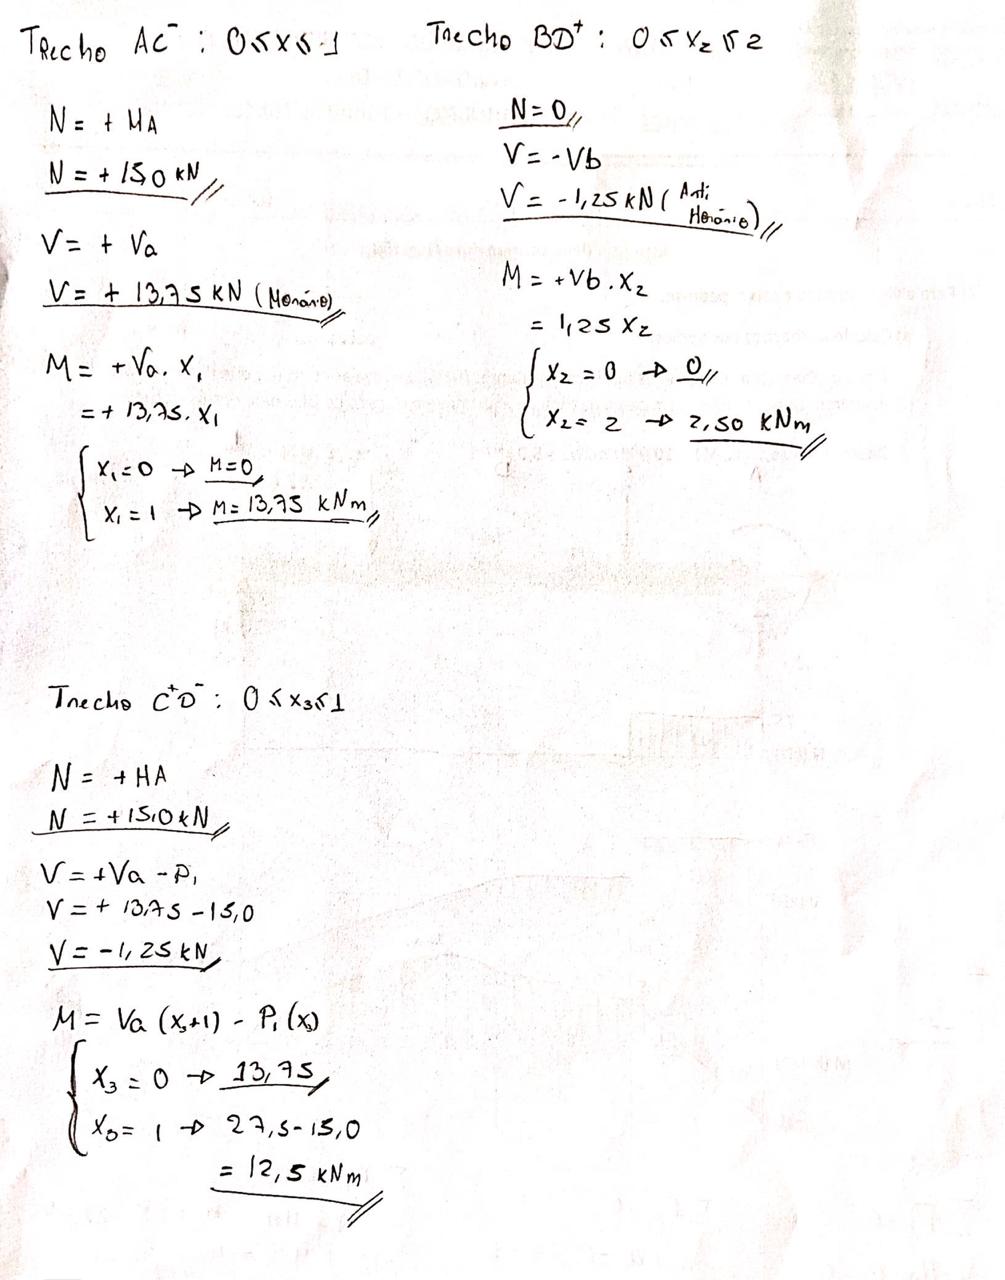 Trecho AC⁻ : 0≤X≤1
N = + HA
N = + 15,0 kN
V = + Va
V = + 13,75 kN (Horário)
M = + Va . X₁
= + 13,75 . X₁
X₁ = 0 → M=0
X₁ = 1 → M= 13,75 kNm
Trecho BD⁺ : 0 ≤ X₂ ≤ 2
N = 0
V = - Vb
V = - 1,25 kN ( Anti
Horário)
M = +Vb . X₂
= 1,25 X₂
X₂ = 0 → 0
X₂ = 2 → 2,50 kNm
Trecho C⁺D⁻ : 0 ≤ X₃ ≤ 1
N = + HA
N = + 15,0 kN
V = +Va - P₁
V = + 13,75 - 15,0
V = - 1,25 kN
M = Va (X₃+1) - P₁ (X₃)
X₃ = 0 → 13,75
X₃ = 1 → 27,5 - 15,0
= 12,5 kNm